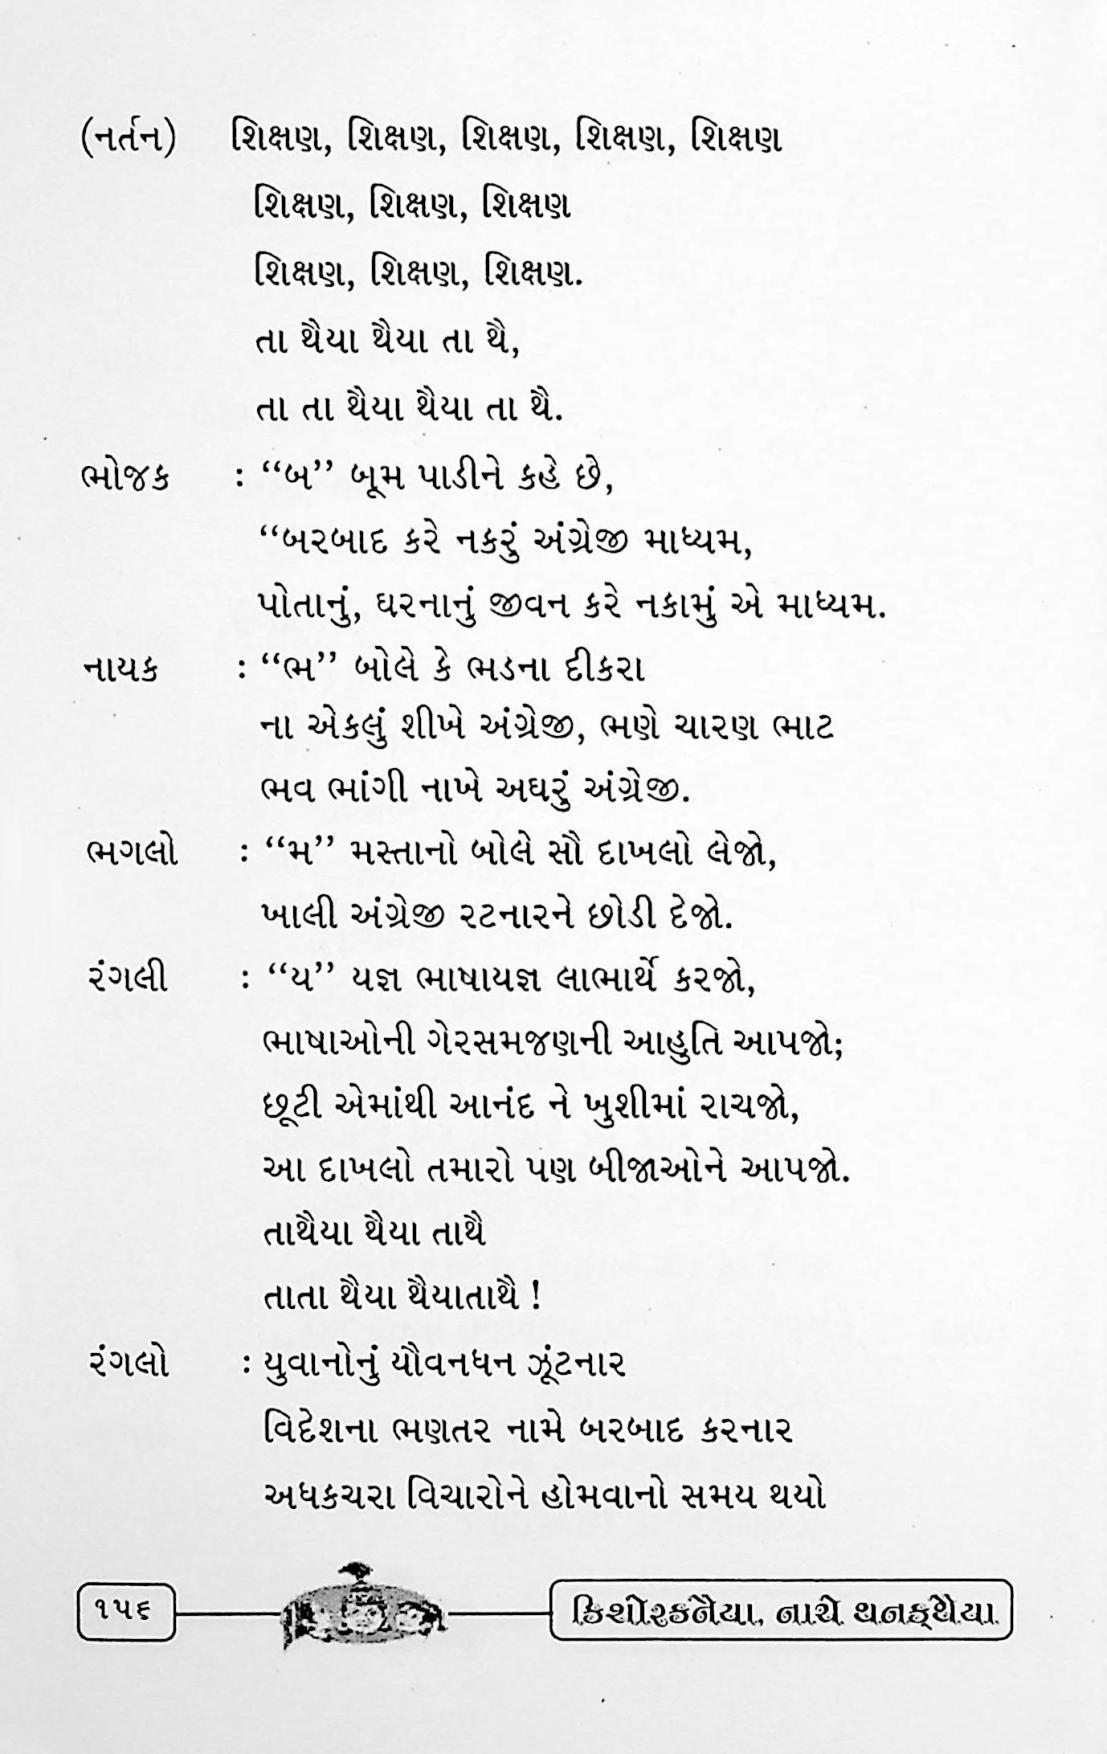 (નર્તન) શિક્ષણ, શિક્ષણ, શિક્ષણ, શિક્ષણ, શિક્ષણ
શિક્ષણ, શિક્ષણ, શિક્ષણ
શિક્ષણ, શિક્ષણ, શિક્ષણ.
તા થૈયા થૈયા તા થૈ,
તા તા થૈયા થૈયા તા થૈ.
ભોજક : “બ” બૂમ પાડીને કહે છે,
“બરબાદ કરે નકરું અંગ્રેજી માધ્યમ,
પોતાનું, ઘરનાનું જીવન કરે નકામું એ માધ્યમ.
નાયક : “ભ” બોલે કે ભડના દીકરા
ના એકલું શીખે અંગ્રેજી, ભણે ચારણ ભાટ
ભવ ભાંગી નાખે અઘરું અંગ્રેજી.
ભગલો : “મ” મસ્તાનો બોલે સૌ દાખલો લેજો,
ખાલી અંગ્રેજી રટનારને છોડી દેજો.
રંગલી : “ય” યજ્ઞ ભાષાયજ્ઞ લાભાર્થે કરજો,
ભાષાઓની ગેરસમજણની આહુતિ આપજો;
છૂટી એમાંથી આનંદ ને ખુશીમાં રાચજો,
આ દાખલો તમારો પણ બીજાઓને આપજો.
તાથૈયા થૈયા તાથૈ
તાતા થૈયા થૈયાતાથૈ !
રંગલો : યુવાનોનું યૌવનધન ઝૂંટનાર
વિદેશના ભણતર નામે બરબાદ કરનાર
અધકચરા વિચારોને હોમવાનો સમય થયો
૧૫૬ કિશોરકનૈયા, નાચે થનક્થૈયા